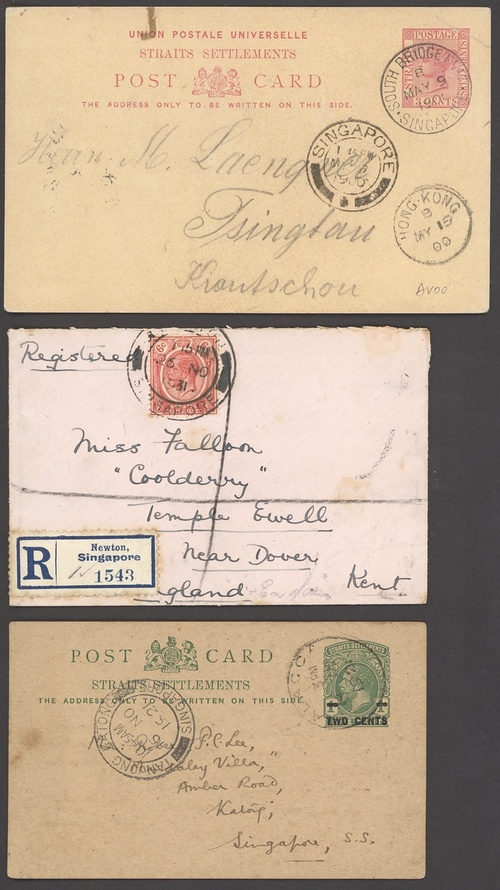 UNION POSTALE UNIVERSELLE
STRAITS SETTLEMENTS
POST CARD
THE ADDRESS ONLY TO BE WRITTEN ON THIS SIDE.
POSTAGE
3 CENTS
SOUTH BRIDGE
B
MAY 9
SINGAPO
SINGAPORE
HONG-KONG
B
MY 18
00
Herrn M.
Tsingtau
Kiautschou
AV00
Registered
NO
31
Miss Falloon
"Coolderry"
Temple Ewell
Near Dover
gland
Kent
R
Newton,
Singapore
1543
POST CARD
STRAITS SETTLEMENTS
THE ADDRESS ONLY TO BE WRITTEN ON THIS SIDE.
STRAITS SETTLEMENTS
TWO CENTS
MALACCA
PM
TANJONG KATONG
SINGAPORE
NO
P.C. Lee,
Villa,"
Amber Road,
Katong,
Singapore, S.S.